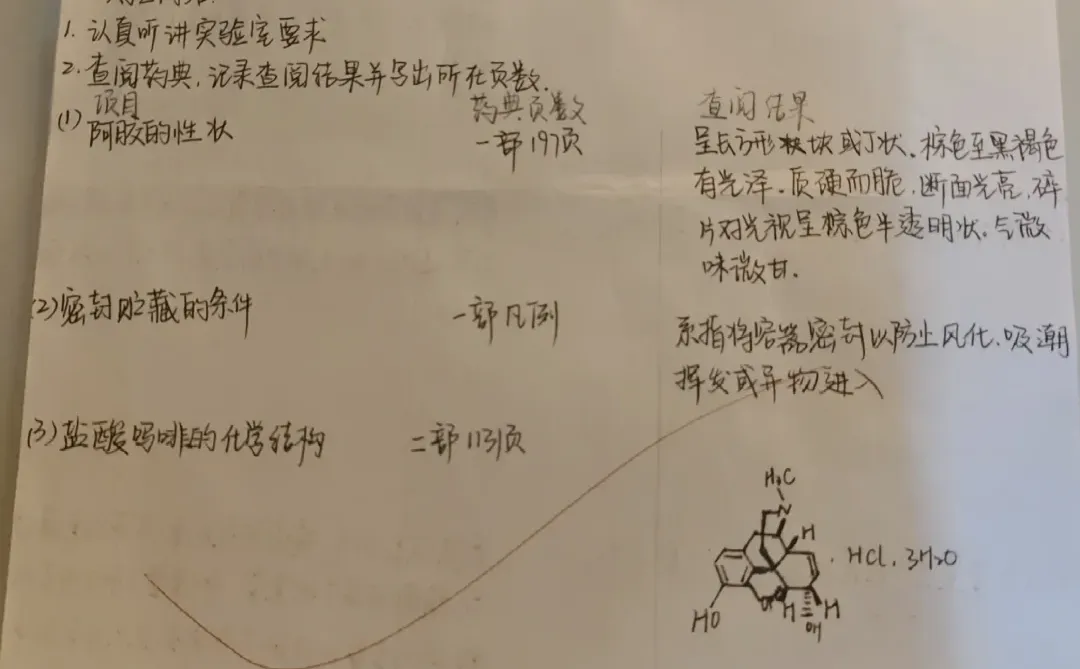 1. 认真听讲实验室要求
2. 查阅药典,记录查阅结果并写出所在页数.
项目 药典页数 查阅结果
(1) 阿胶的性状 一部197页 呈长方形块或丁状.棕色至黑褐色
有光泽.质硬而脆.断面光亮.碎
片对光视呈棕色半透明状.气微
味微甘.
(2)密封贮藏的条件 一部凡例 系指将容器密封以防止风化.吸潮
挥发或异物进入
(3)盐酸吗啡的化学结构 二部1131页
H3C
N
H
. HCl. 3H2O
HO O H H
OH